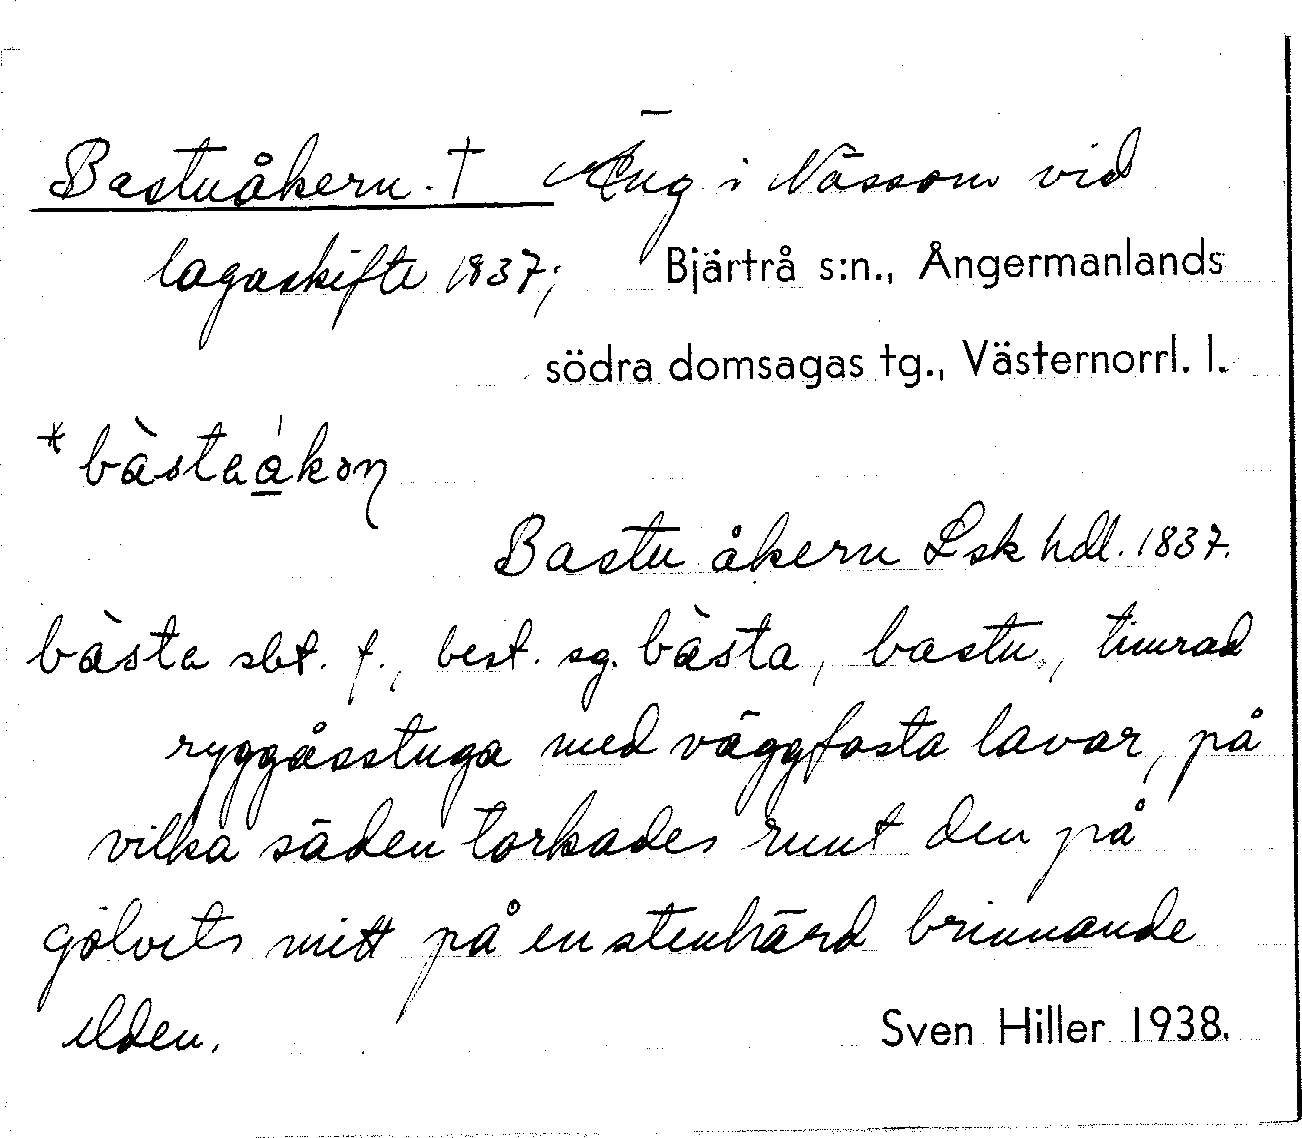 Bastuåkern. † Äng i Nässom vid
lagaskifte 1837; Bjärtrå s:n., Ångermanlands
södra domsagas tg., Västernorrl. l.
* bàstaákəɳ
Bastu åkern Lsk hdl. 1837.
bàsta sbt. f., best. sg. bàsta, bastu, timrad
ryggåsstuga med väggfasta lavar, på
vilka säden torkades runt den på
golvets mitt på en stenhärd brinnande
elden.
Sven Hiller 1938.